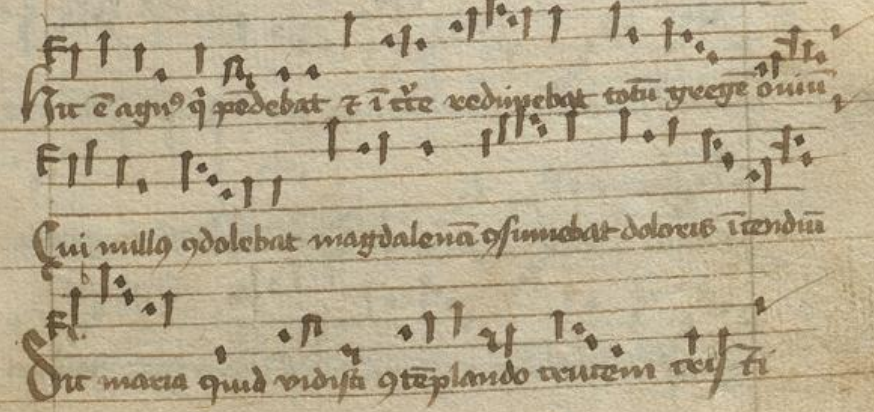 Hic ē agnꝰ q̄ pēdebat ⁊ ī cͬce redimebat totū gregē oviū
Cui nullꝰ ꝯdolebat magdalenā ꝯsumebat doloris īcendiū
Dic maria quid vidisti ꝯtēplando crucem cristi